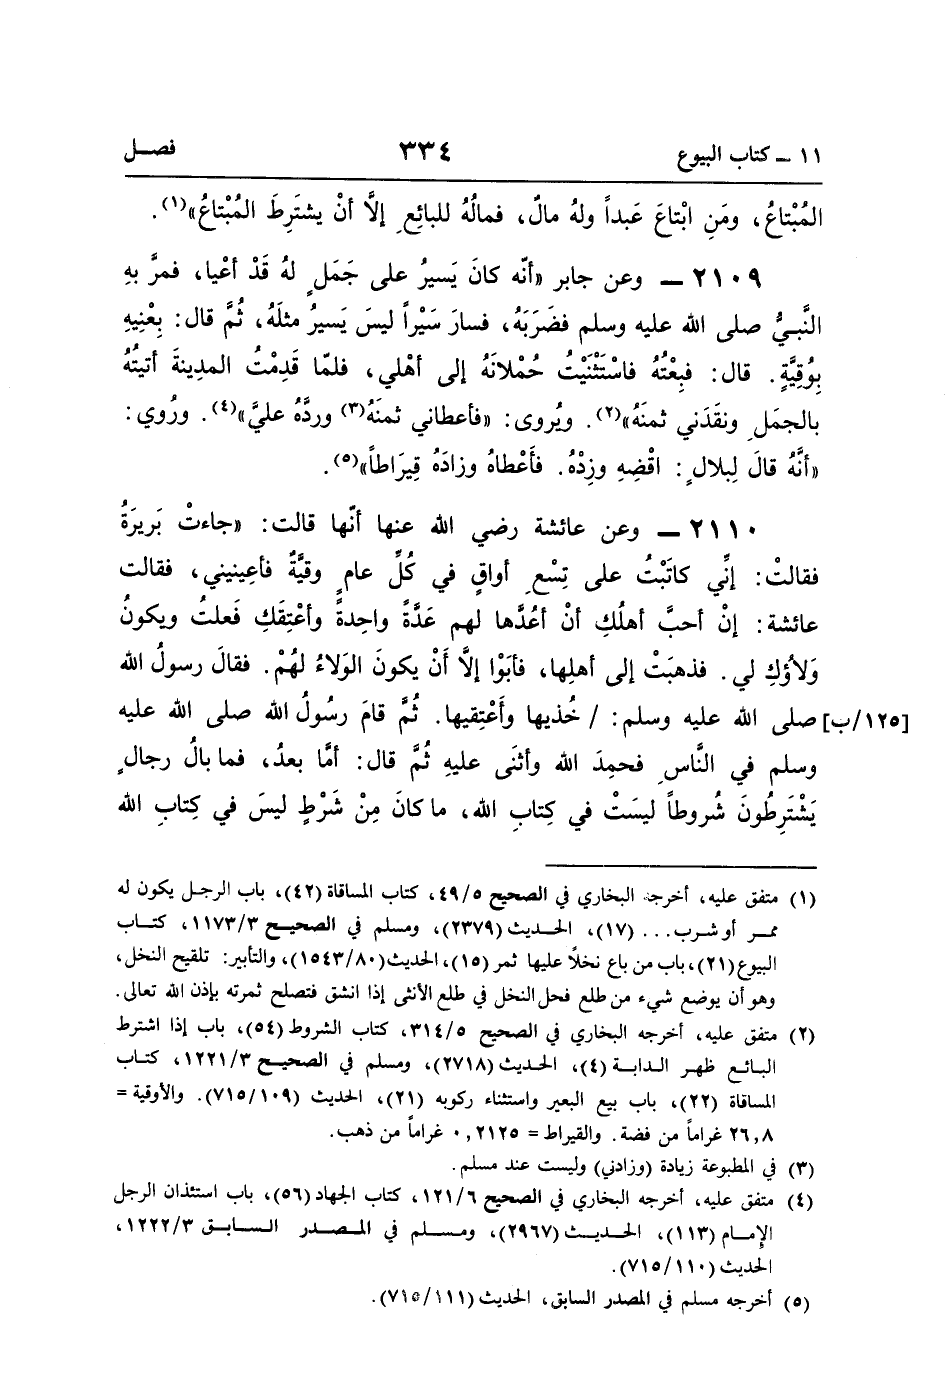 ١١ ـ كتاب البيوع ٣٣٤ فصـل
المُبْتاعُ، ومَنِ ابْتاعَ عَبداً ولهُ مالٌ، فمالُهُ للبائعِ إلاَّ أنْ يشتَرِطَ المُبْتاعُ»(١).
٢١٠٩ ـ وعن جابر «أنّه كانَ يَسيرُ على جَمَلٍ لهُ قَدْ أعْيا، فمرَّ بهِ
النَّبيُّ صلى الله عليه وسلم فضَرَبَهُ، فسارَ سَيْراً ليسَ يَسيرُ مثلَهُ، ثُمَّ قال: بِعْنِيهِ
بِوُقِيَّةٍ. قال: فبِعْتُهُ فاسْتَثْنَيْتُ حُمْلانَهُ إلى أهْلي، فلمّا قَدِمْتُ المدينةَ أتيتُهُ
بالجمَلِ ونقَدَني ثمنَهُ»(٢). ويُروى: «فأعطاني ثمنَهُ(٣) وردَّهُ عليَّ»(٤). ورُوي:
«أنَّهُ قالَ لِبلالٍ: اقْضِهِ وزِدْهُ. فأَعْطاهُ وزادَهُ قِيرَاطاً»(٥).
٢١١٠ ـ وعن عائشة رضي الله عنها أنّها قالت: «جاءتْ بَريرَةُ
فقالتْ: إنِّي كاتَبْتُ على تِسْعِ أواقٍ في كُلِّ عامٍ وقيَّةٌ فأعِينيني، فقالت
عائشة: إنْ أحبَّ أهلُكِ أنْ أعُدَّها لهم عَدَّةً واحِدةً وأعْتِقَكِ فَعلتُ ويكونُ
وَلاؤكِ لي. فذهبَتْ إلى أهلِها، فأبَوْا إلاَّ أَنْ يكونَ الوَلاءُ لهُمْ. فقالَ رسولُ الله
[١٢٥/ب] صلى الله عليه وسلم: / خُذيها وأَعْتِقيها. ثُمَّ قامَ رسُولُ الله صلى الله عليه
وسلم في النَّاسِ فحمِدَ الله وأثنَى عليهِ ثُمَّ قال: أمَّا بعدُ، فما بالُ رجالٍ
يَشْتَرِطُونَ شُروطاً ليسَتْ في كِتابِ الله، ما كانَ مِنْ شَرْطٍ ليسَ في كِتابِ الله
(١) متفق عليه، أخرجه البخاري في الصحيح ٤٩/٥، كتاب المساقاة (٤٢)، باب الرجل يكون له
ممر أو شرب... (١٧)، الحديث (٢٣٧٩)، ومسلم في الصحيح ١١٧٣/٣، كتاب
البيوع (٢١)، باب من باع نخلاً عليها ثمر (١٥)، الحديث (١٥٤٣/٨٠)، والتأبير: تلقيح النخل،
وهو أن يوضع شيء من طلع فحل النخل في طلع الأنثى إذا انشق فتصلح ثمرته بإذن الله تعالى.
(٢) متفق عليه، أخرجه البخاري في الصحيح ٣١٤/٥، كتاب الشروط (٥٤)، باب إذا اشترط
البائع ظهر الدابة (٤)، الحديث (٢٧١٨)، ومسلم في الصحيح ١٢٢١/٣، كتاب
المساقاة (٢٢)، باب بيع البعير واستثناء ركوبه (٢١)، الحديث (٧١٥/١٠٩). والأوقية =
٢٦,٨ غراماً من فضة. والقيراط = ٠,٢١٢٥ غراماً من ذهب.
(٣) في المطبوعة زيادة (وزادني) وليست عند مسلم.
(٤) متفق عليه، أخرجه البخاري في الصحيح ١٢١/٦، كتاب الجهاد (٥٦)، باب استئذان الرجل
الإمام (١١٣)، الحديث (٢٩٦٧)، ومسلم في المصدر السابق ١٢٢٢/٣،
الحديث (٧١٥/١١٠).
(٥) أخرجه مسلم في المصدر السابق، الحديث (٧١٥/١١١).